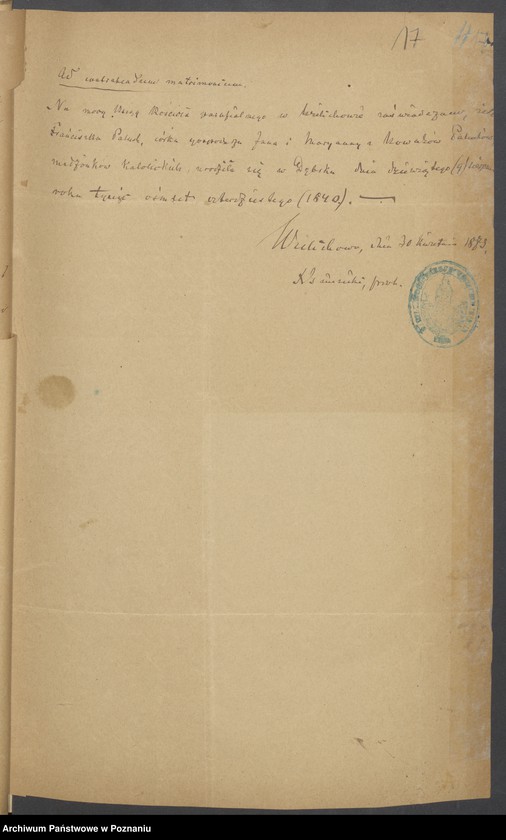 17
Ad contrahendum matrimonium.
Na mocy Ksiąg Kościoła parafialnego w Wielichowie zaświadczam, że
Franciszka Paluch, córka gospodarza Jana i Maryanny z Nowaków Paluchów
małżonków katolickich urodziła się w dnia dziewiątego (9)
roku tysiąc ośmset czterdziestego (1840).
Wielichowo, dnia 30 Kwietnia 1873.
prob.
Archiwum Państwowe w Poznaniu